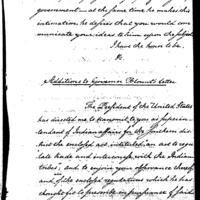 government — at the same time he makes this
intimation, he desires that you would com
municate your ideas to him upon the subject
I have the honor to be
&c
Additions to Governor Blount's Letter
The President of the United States
has directed me to transmit to you as superin
tendent of Indian affairs for the southern dis
trict the enclosed act, intitled an act to regu
late trade and intercourse with the Indian
tribes, and to enjoin your observance thereof
and of the enclosed regulations which he has
thought fit to prescribe in pursuance of said